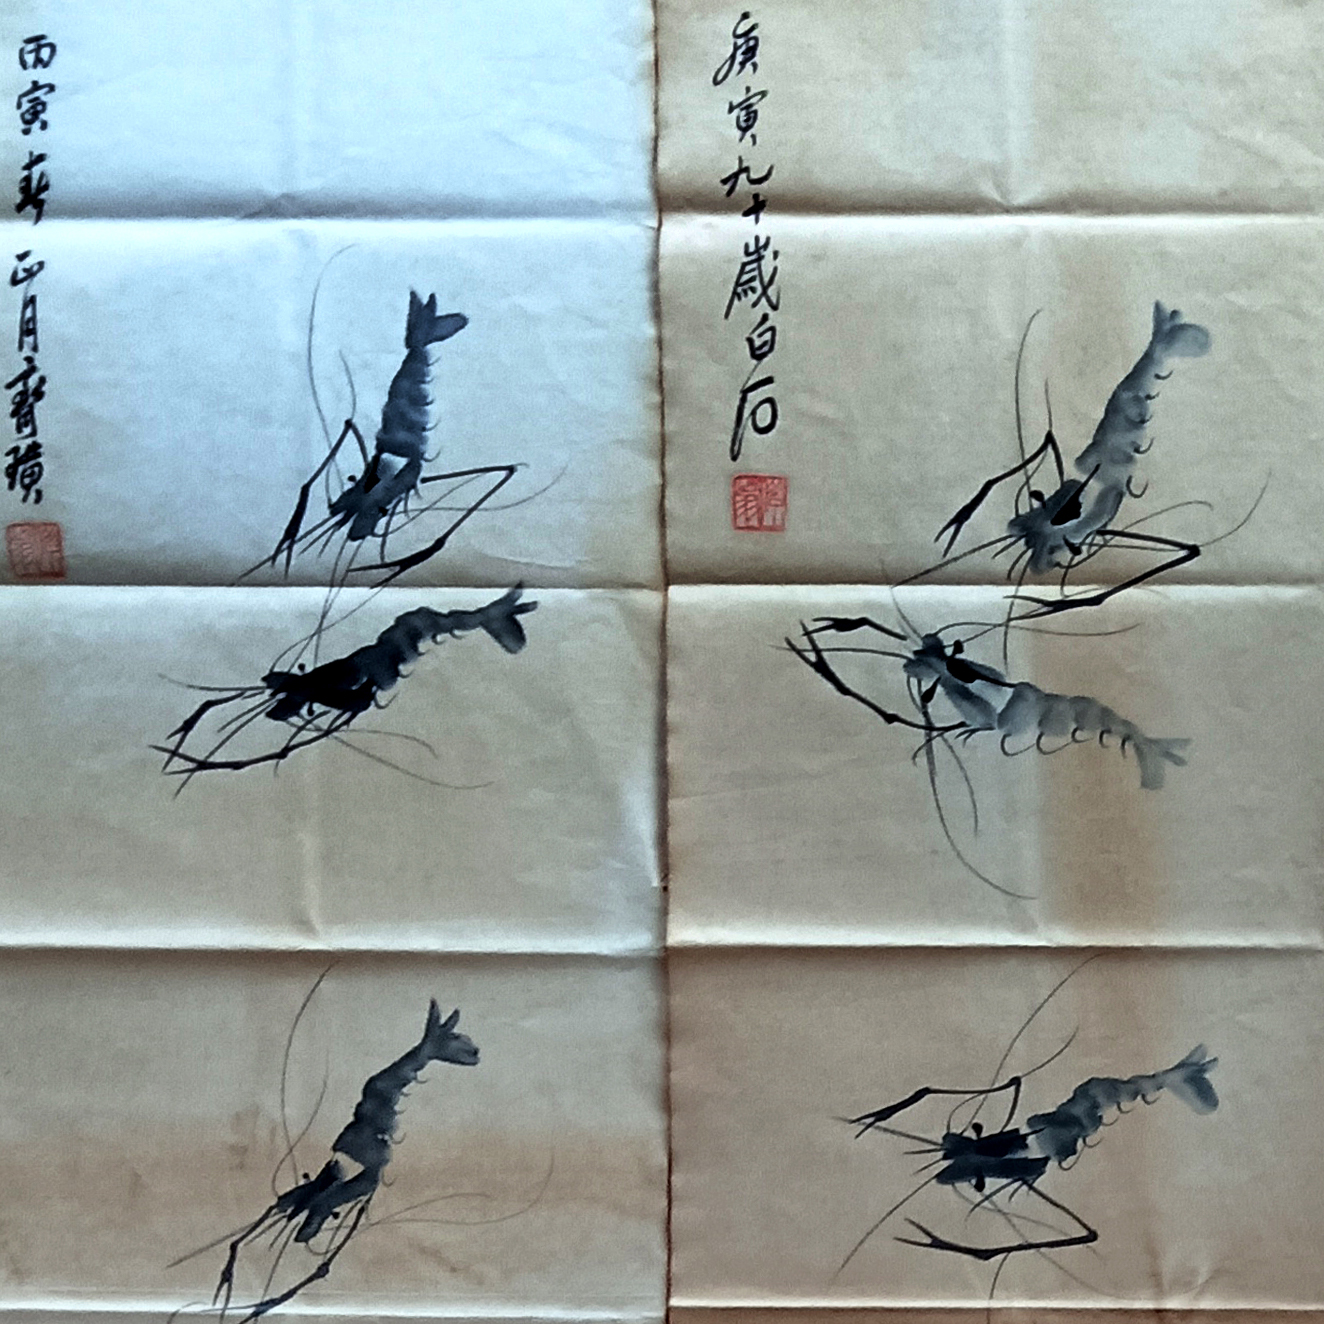 庚寅九十歲白石
丙寅春正月齊璜